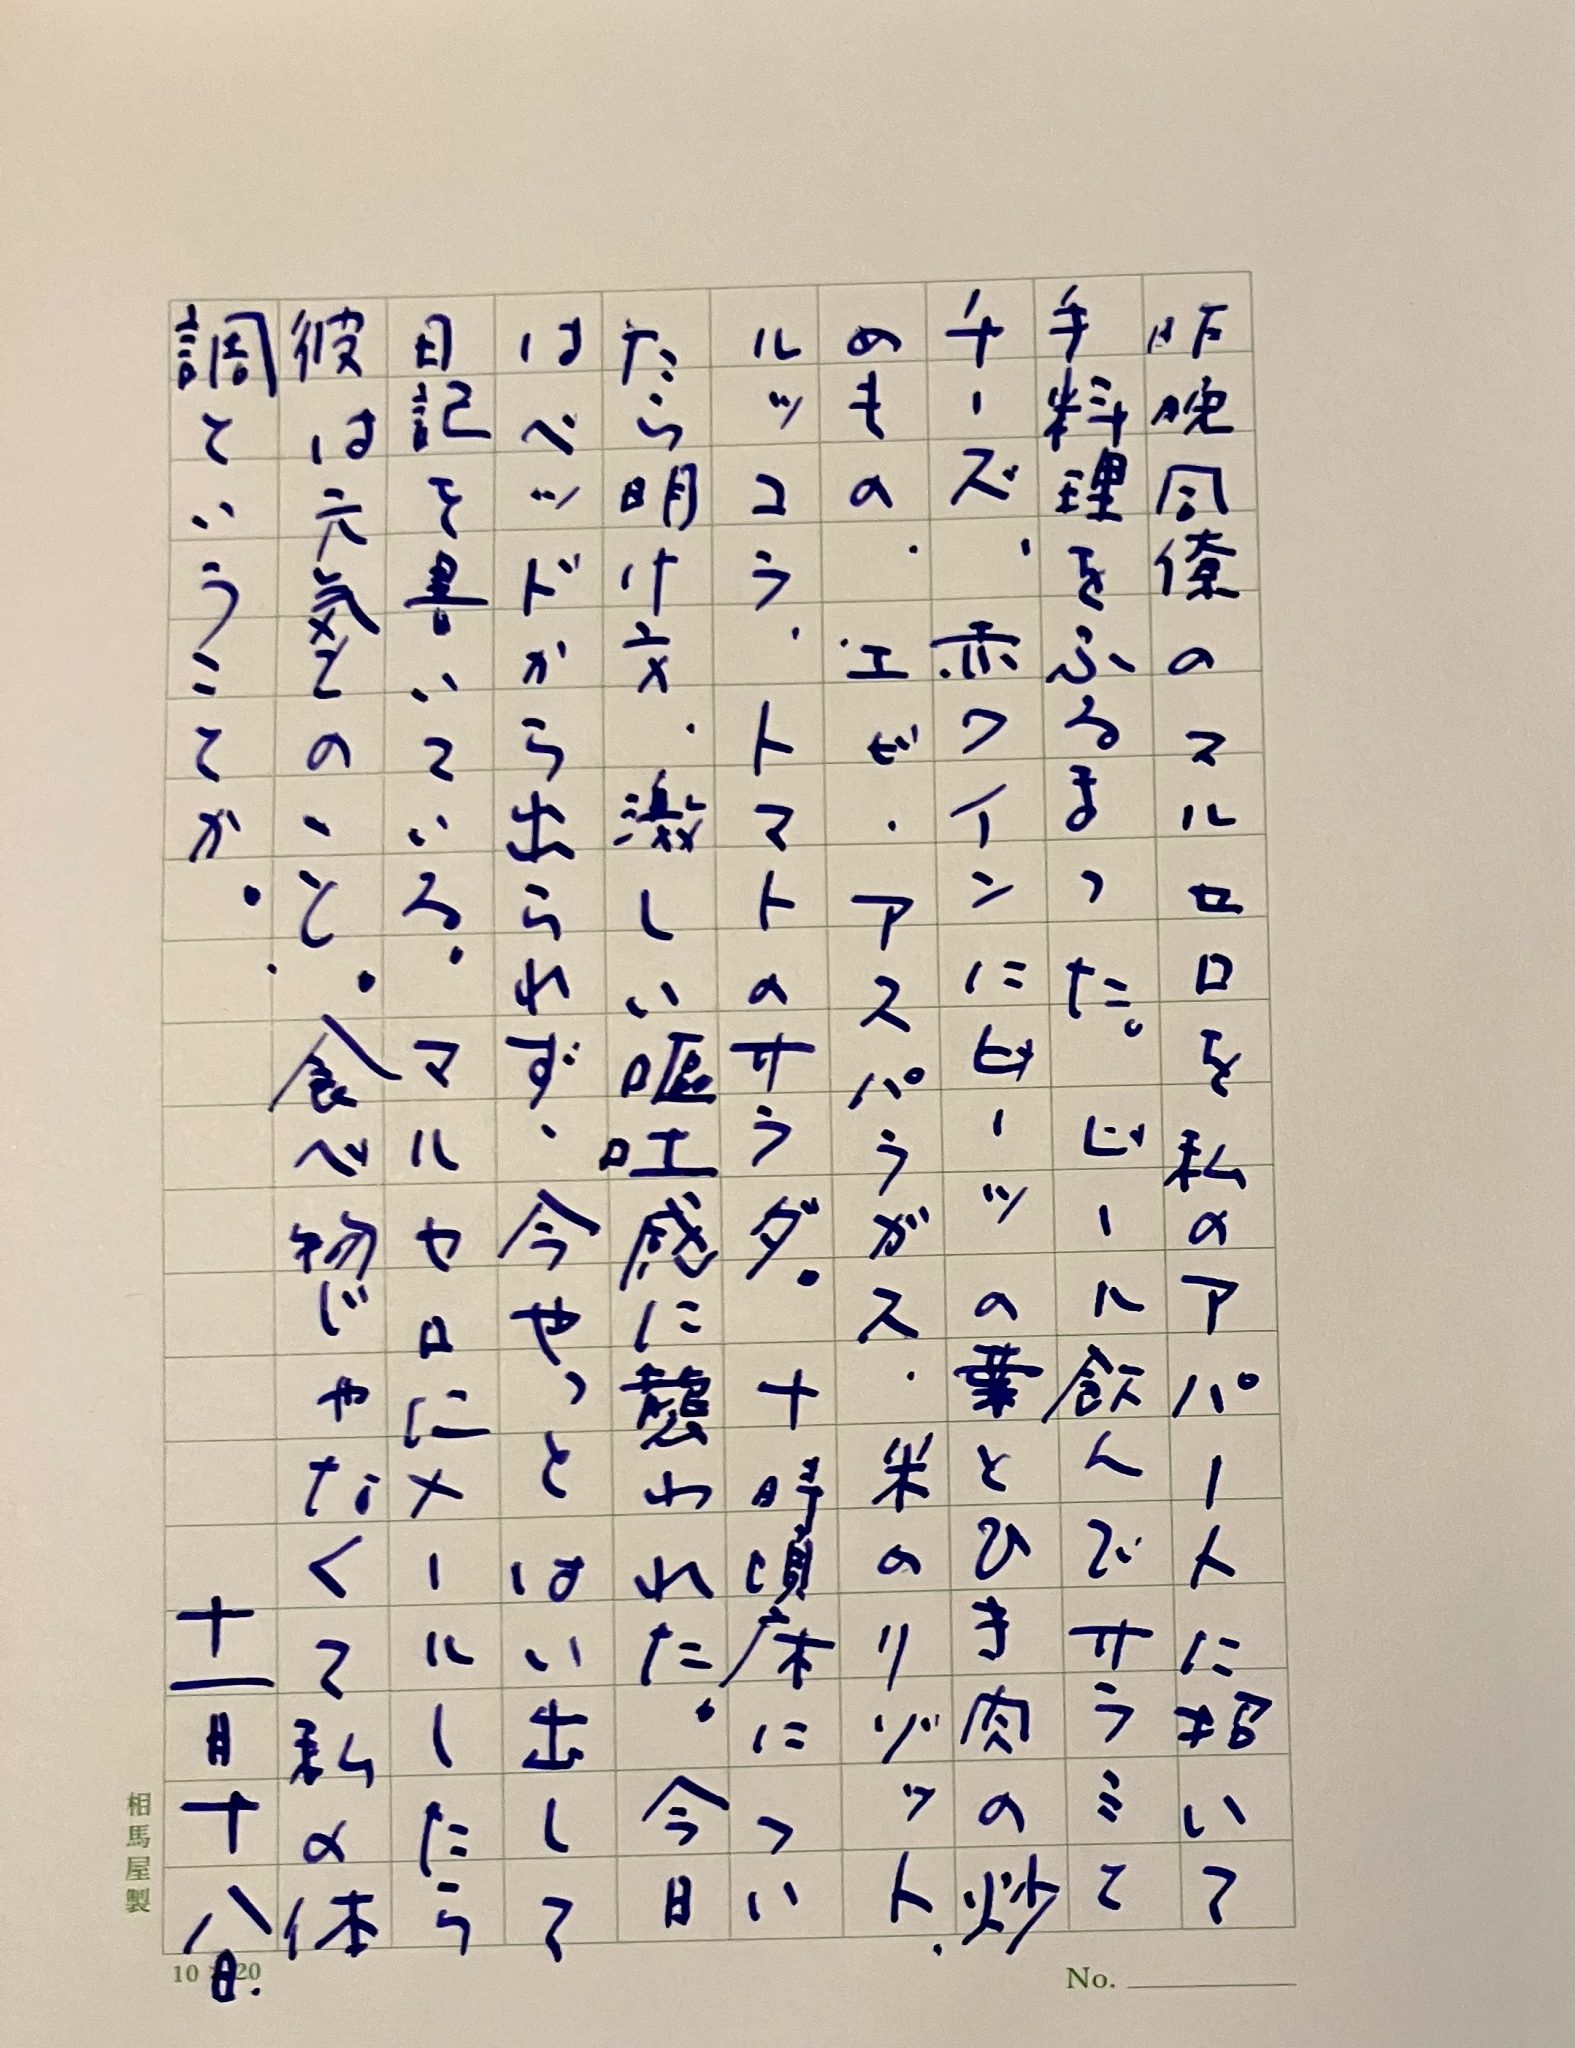 昨晩同僚のマルセロを私のアパートに招いて
手料理をふるまった。ビール飲んでサラミと
チーズ、赤ワインにビーツの葉とひき肉の炒
めもの、エビ・アスパラガス・米のリゾット、
ルッコラ、トマトのサラダ。十時頃床につい
たら明け方、激しい嘔吐感に襲われた。今日
はベッドから出られず、今やっとはい出して
日記を書いている。マルセロにメールしたら
彼は元気とのこと。食べ物じゃなくて私の体
調ということか。
十一月十八日.
相馬屋製
10 20
No.